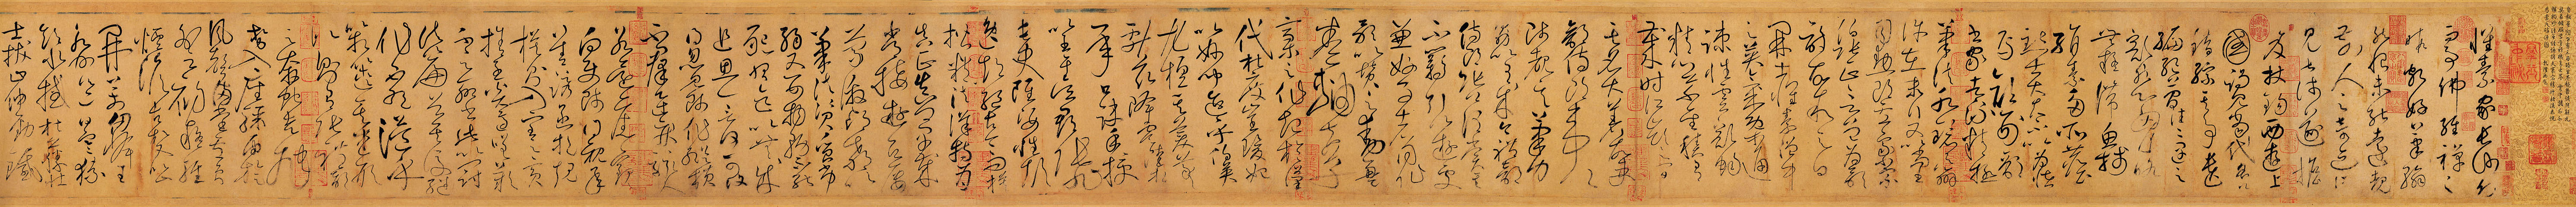 懷素家長沙幼
而事佛經禪之
暇頗好筆翰
然恨未能遠覩
前人之奇迹所
見甚淺遂擔
笈杖錫西遊上
國謁見當代名公
錯綜其事遺
編絕簡往往遇之
豁然心胸略
無疑滯魚牋
絹素多所塵
點士大夫不以為
怪焉顏刑部
書家者流精極
筆法水鏡之辨
許在末行又以尚書
司勳郎盧象小宗
伯張正言曾為歌詩
故敘之曰
開士懷素僧中
之英氣概通
疎性靈豁暢
精心草聖積有
歲時江嶺之間
其名大著故吏
部侍郎韋公
陟覩其筆力
勗以有成今禮部
侍郎張公謂賞其
不羈引以遊處
兼好事者同作
歌以贊之動盈
卷軸夫草
藁之作起於漢
代杜度崔瑗始
以妙聞迨乎伯英
尤擅其美羲
獻茲降虞陸相
承口訣手授
以至於吳郡張旭
長史雖姿性顛
逸超絕古今而模
楷精法詳特為
真正真卿早
歲常接遊居
屢蒙激昂教以
筆法資質劣弱
又嬰物務不能
懇習迄以無成
追思一言何可復
得忽見師作縱橫
不群迅疾駭人
若還舊觀
向使師得親承
善誘函挹規
模則入室之賓
捨子奚適嗟歎
不足聊書此以冠諸
篇首其後繼
作不絕溢乎
箱篋其述形
似則有張禮部
云奔蛇走虺
勢入座驟雨旋
風聲滿堂盧員
外云初疑輕
煙澹古松又似山
開萬仞峯王
永州邕曰寒猿
飲水撼枯藤壯
士拔山伸勁鐵